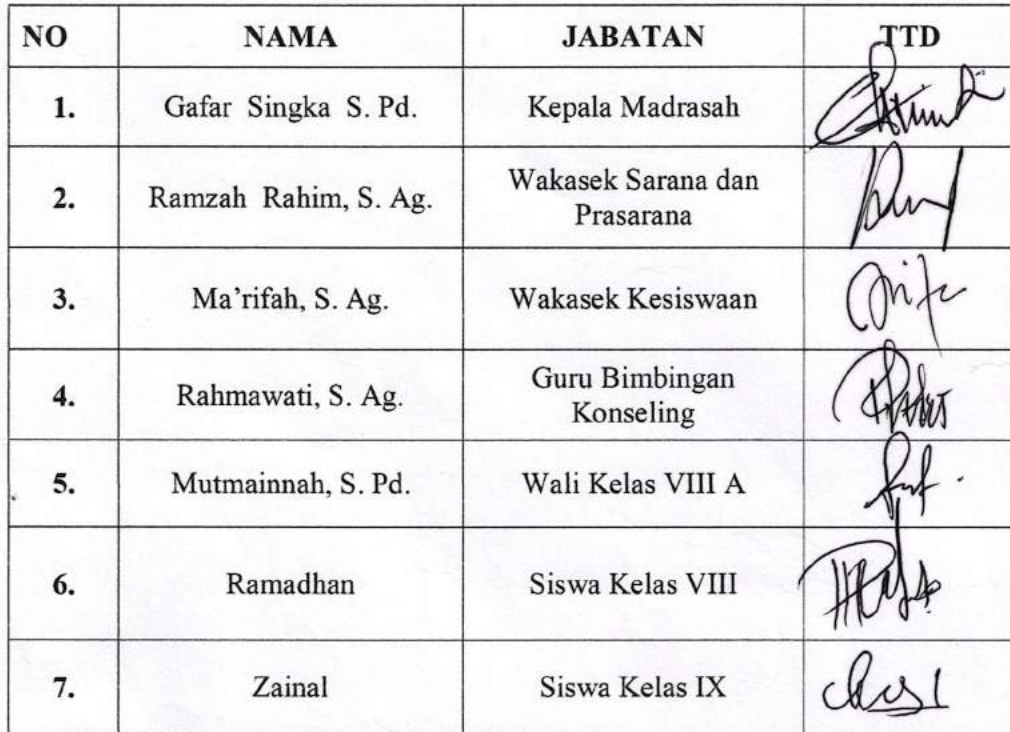 NO NAMA JABATAN TTD
1. Gafar Singka S. Pd. Kepala Madrasah
2. Ramzah Rahim, S. Ag. Wakasek Sarana dan
Prasarana
3. Ma'rifah, S. Ag. Wakasek Kesiswaan
4. Rahmawati, S. Ag. Guru Bimbingan
Konseling
5. Mutmainnah, S. Pd. Wali Kelas VIII A
6. Ramadhan Siswa Kelas VIII
7. Zainal Siswa Kelas IX